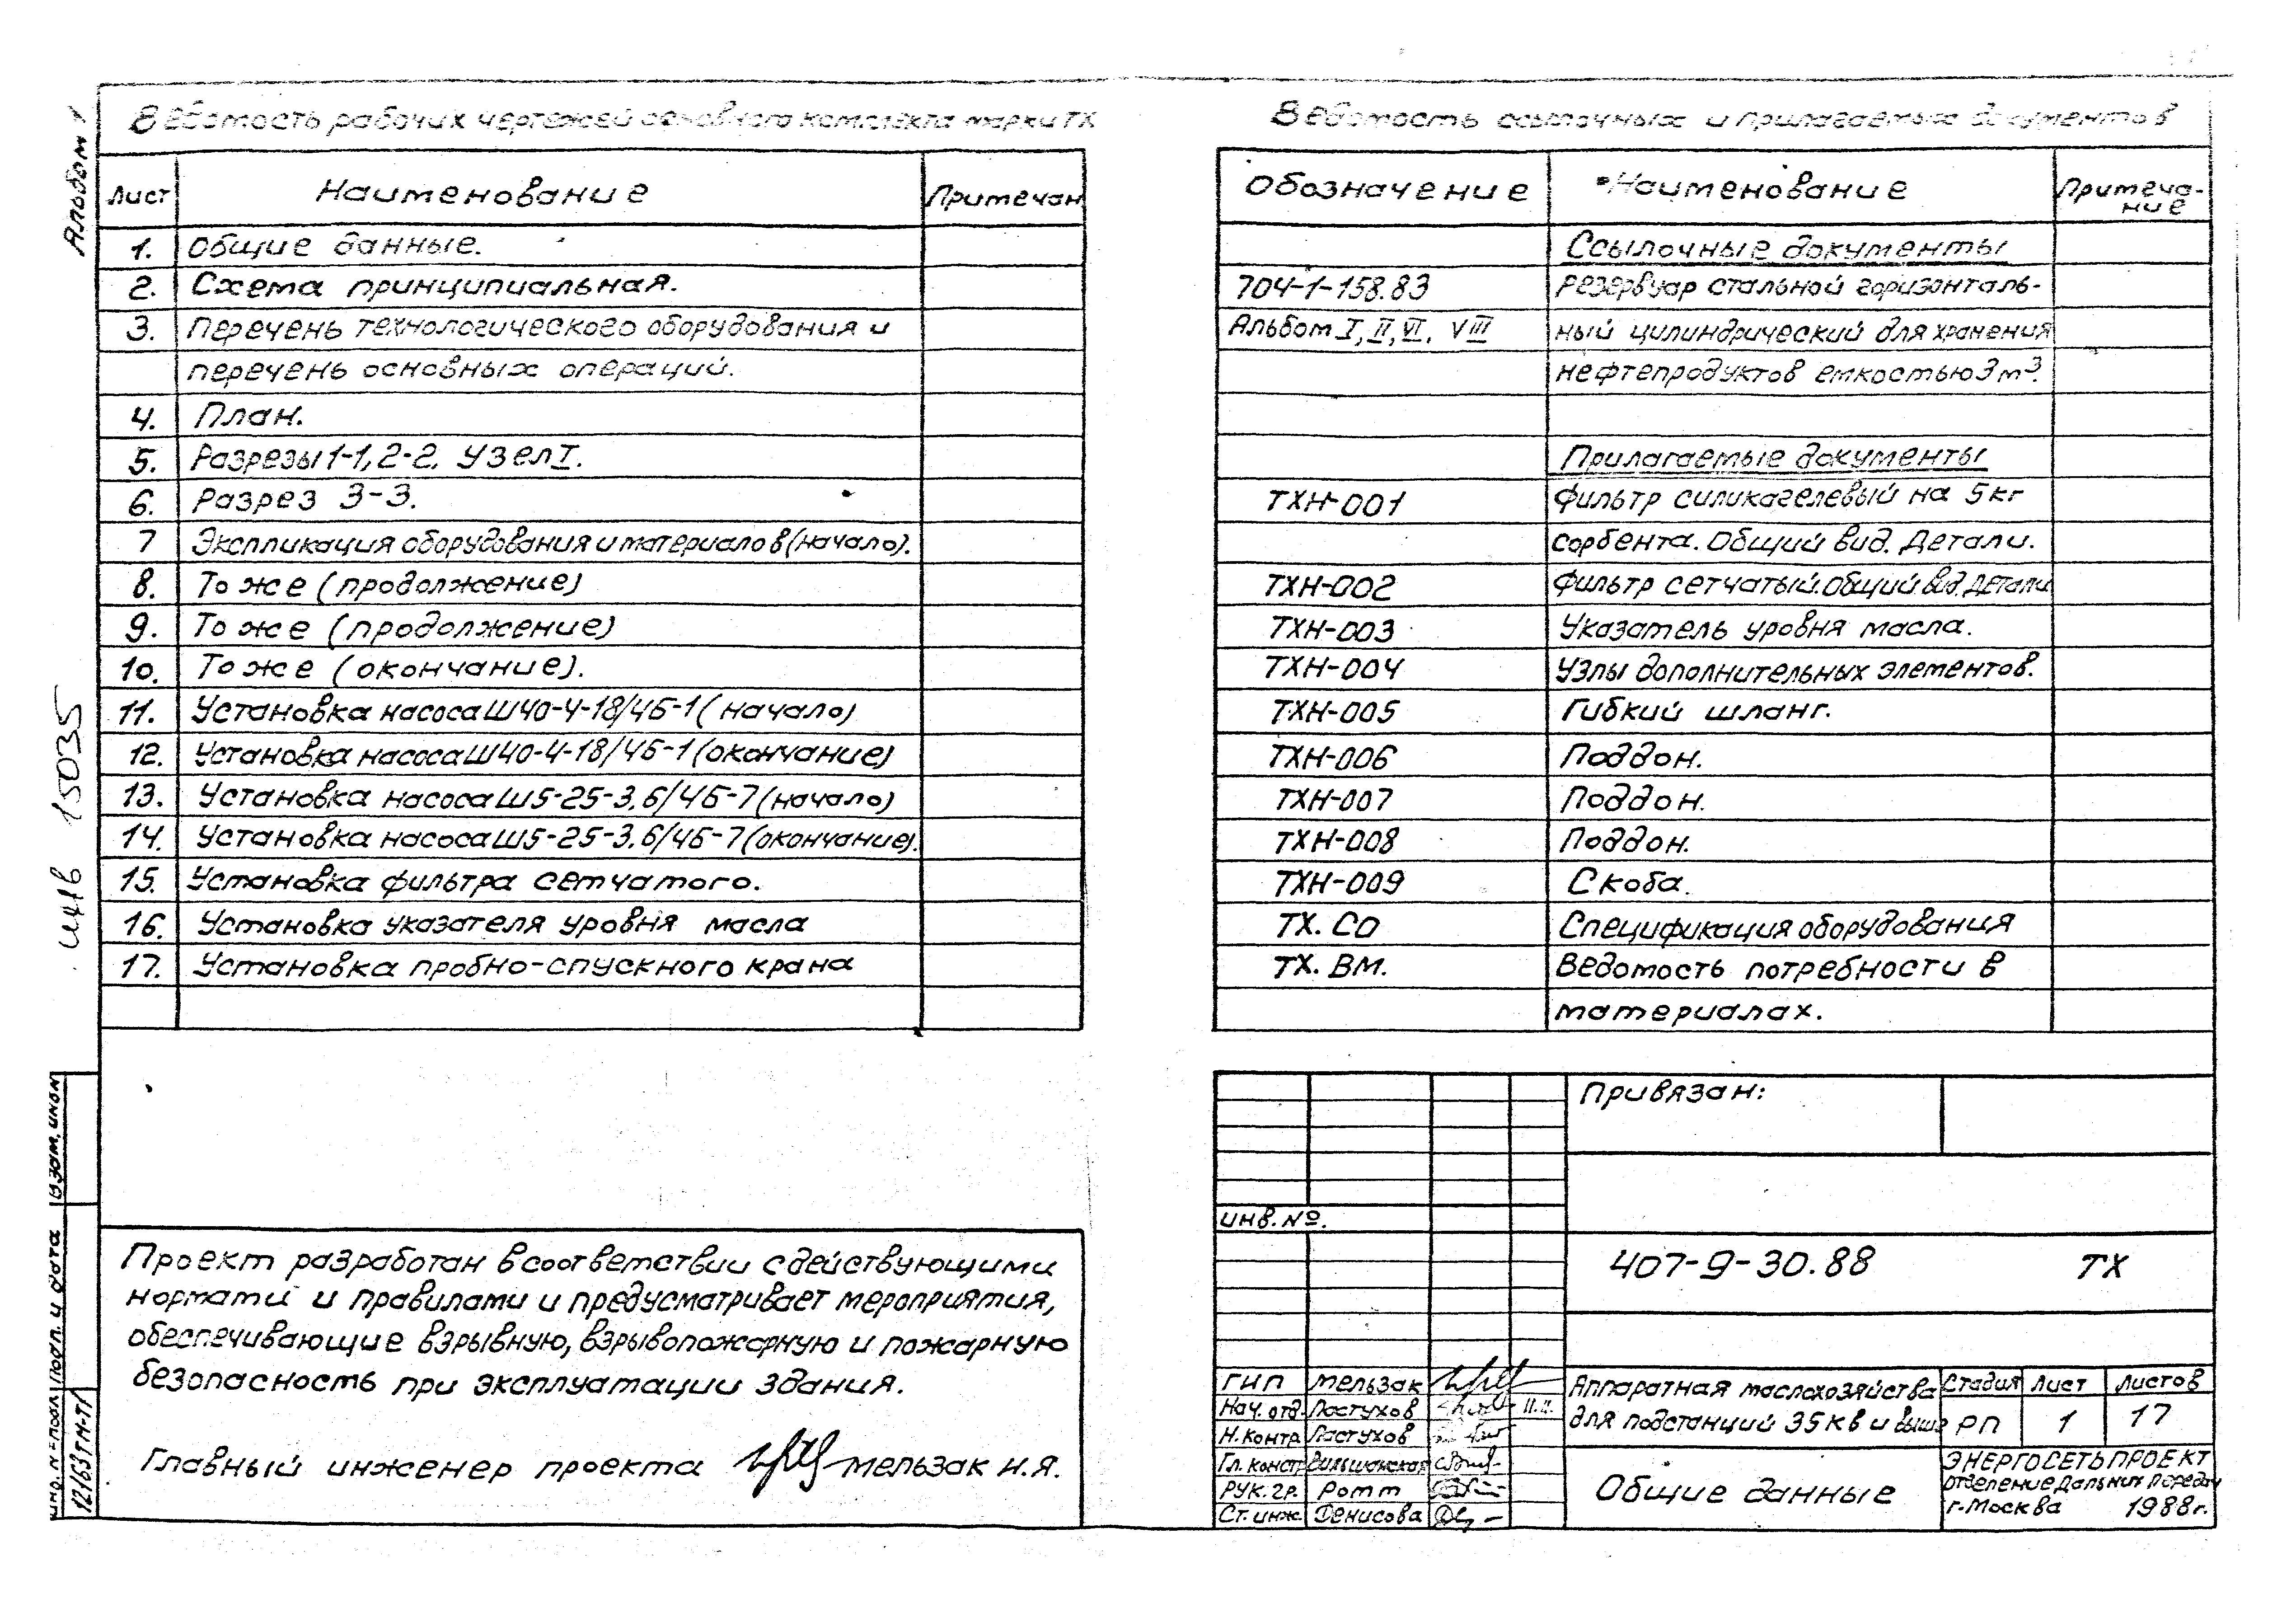 Альбом 1
Ведомость рабочих чертежей основного комплекта марки ТХ
Лист Наименование Примечан.
1. Общие данные.
2. Схема принципиальная.
3. Перечень технологического оборудования и
перечень основных операций.
4. План.
5. Разрезы 1-1, 2-2. Узел I.
6. Разрез 3-3.
7 Экспликация оборудования и материалов (начало).
8. То же (продолжение)
9. То же (продолжение)
10. То же (окончание).
11. Установка насоса Ш40-4-18/4Б-1 (начало)
12. Установка насоса Ш40-4-18/4Б-1 (окончание)
13. Установка насоса Ш5-25-3,6/4Б-7 (начало)
14. Установка насоса Ш5-25-3,6/4Б-7 (окончание).
15. Установка фильтра сетчатого.
16. Установка указателя уровня масла
17. Установка пробно-спускного крана
Проект разработан в соответствии с действующими
нормами и правилами и предусматривает мероприятия,
обеспечивающие взрывную, взрывопожарную и пожарную
безопасность при эксплуатации здания.
Главный инженер проекта Мельзак И.Я.
Ведомость ссылочных и прилагаемых документов
Обозначение Наименование Примеча-
ние
Ссылочные документы
704-1-158.83 Резервуар стальной горизонталь-
Альбом I, II, VI, VIII ный цилиндрический для хранения
нефтепродуктов емкостью 3м³.
Прилагаемые документы
ТХН-001 Фильтр силикагелевый на 5кг
сорбента. Общий вид. Детали.
ТХН-002 Фильтр сетчатый. Общий вид. Детали
ТХН-003 Указатель уровня масла.
ТХН-004 Узлы дополнительных элементов.
ТХН-005 Гибкий шланг.
ТХН-006 Поддон.
ТХН-007 Поддон.
ТХН-008 Поддон.
ТХН-009 Скоба.
ТХ. СО Спецификация оборудования
ТХ. ВМ. Ведомость потребности в
материалах.
Привязан:
Инв. №.
407-9-30.88 ТХ
ГИП Мельзак
Нач. отд. Пастухов
Н. контр. Пастухов
Гл. констр.
Рук. гр. Ротт
Ст. инж. Денисова
Аппаратная маслохозяйства
для подстанций 35кВ и выше
Стадия Лист Листов
РП 1 17
Общие данные
ЭНЕРГОСЕТЬПРОЕКТ
Отделение Дальних Передач
г. Москва 1988г.
инв 15035
Взам. инв №
Подп. и дата
Инв. № подл.
12163ТМ-Т1